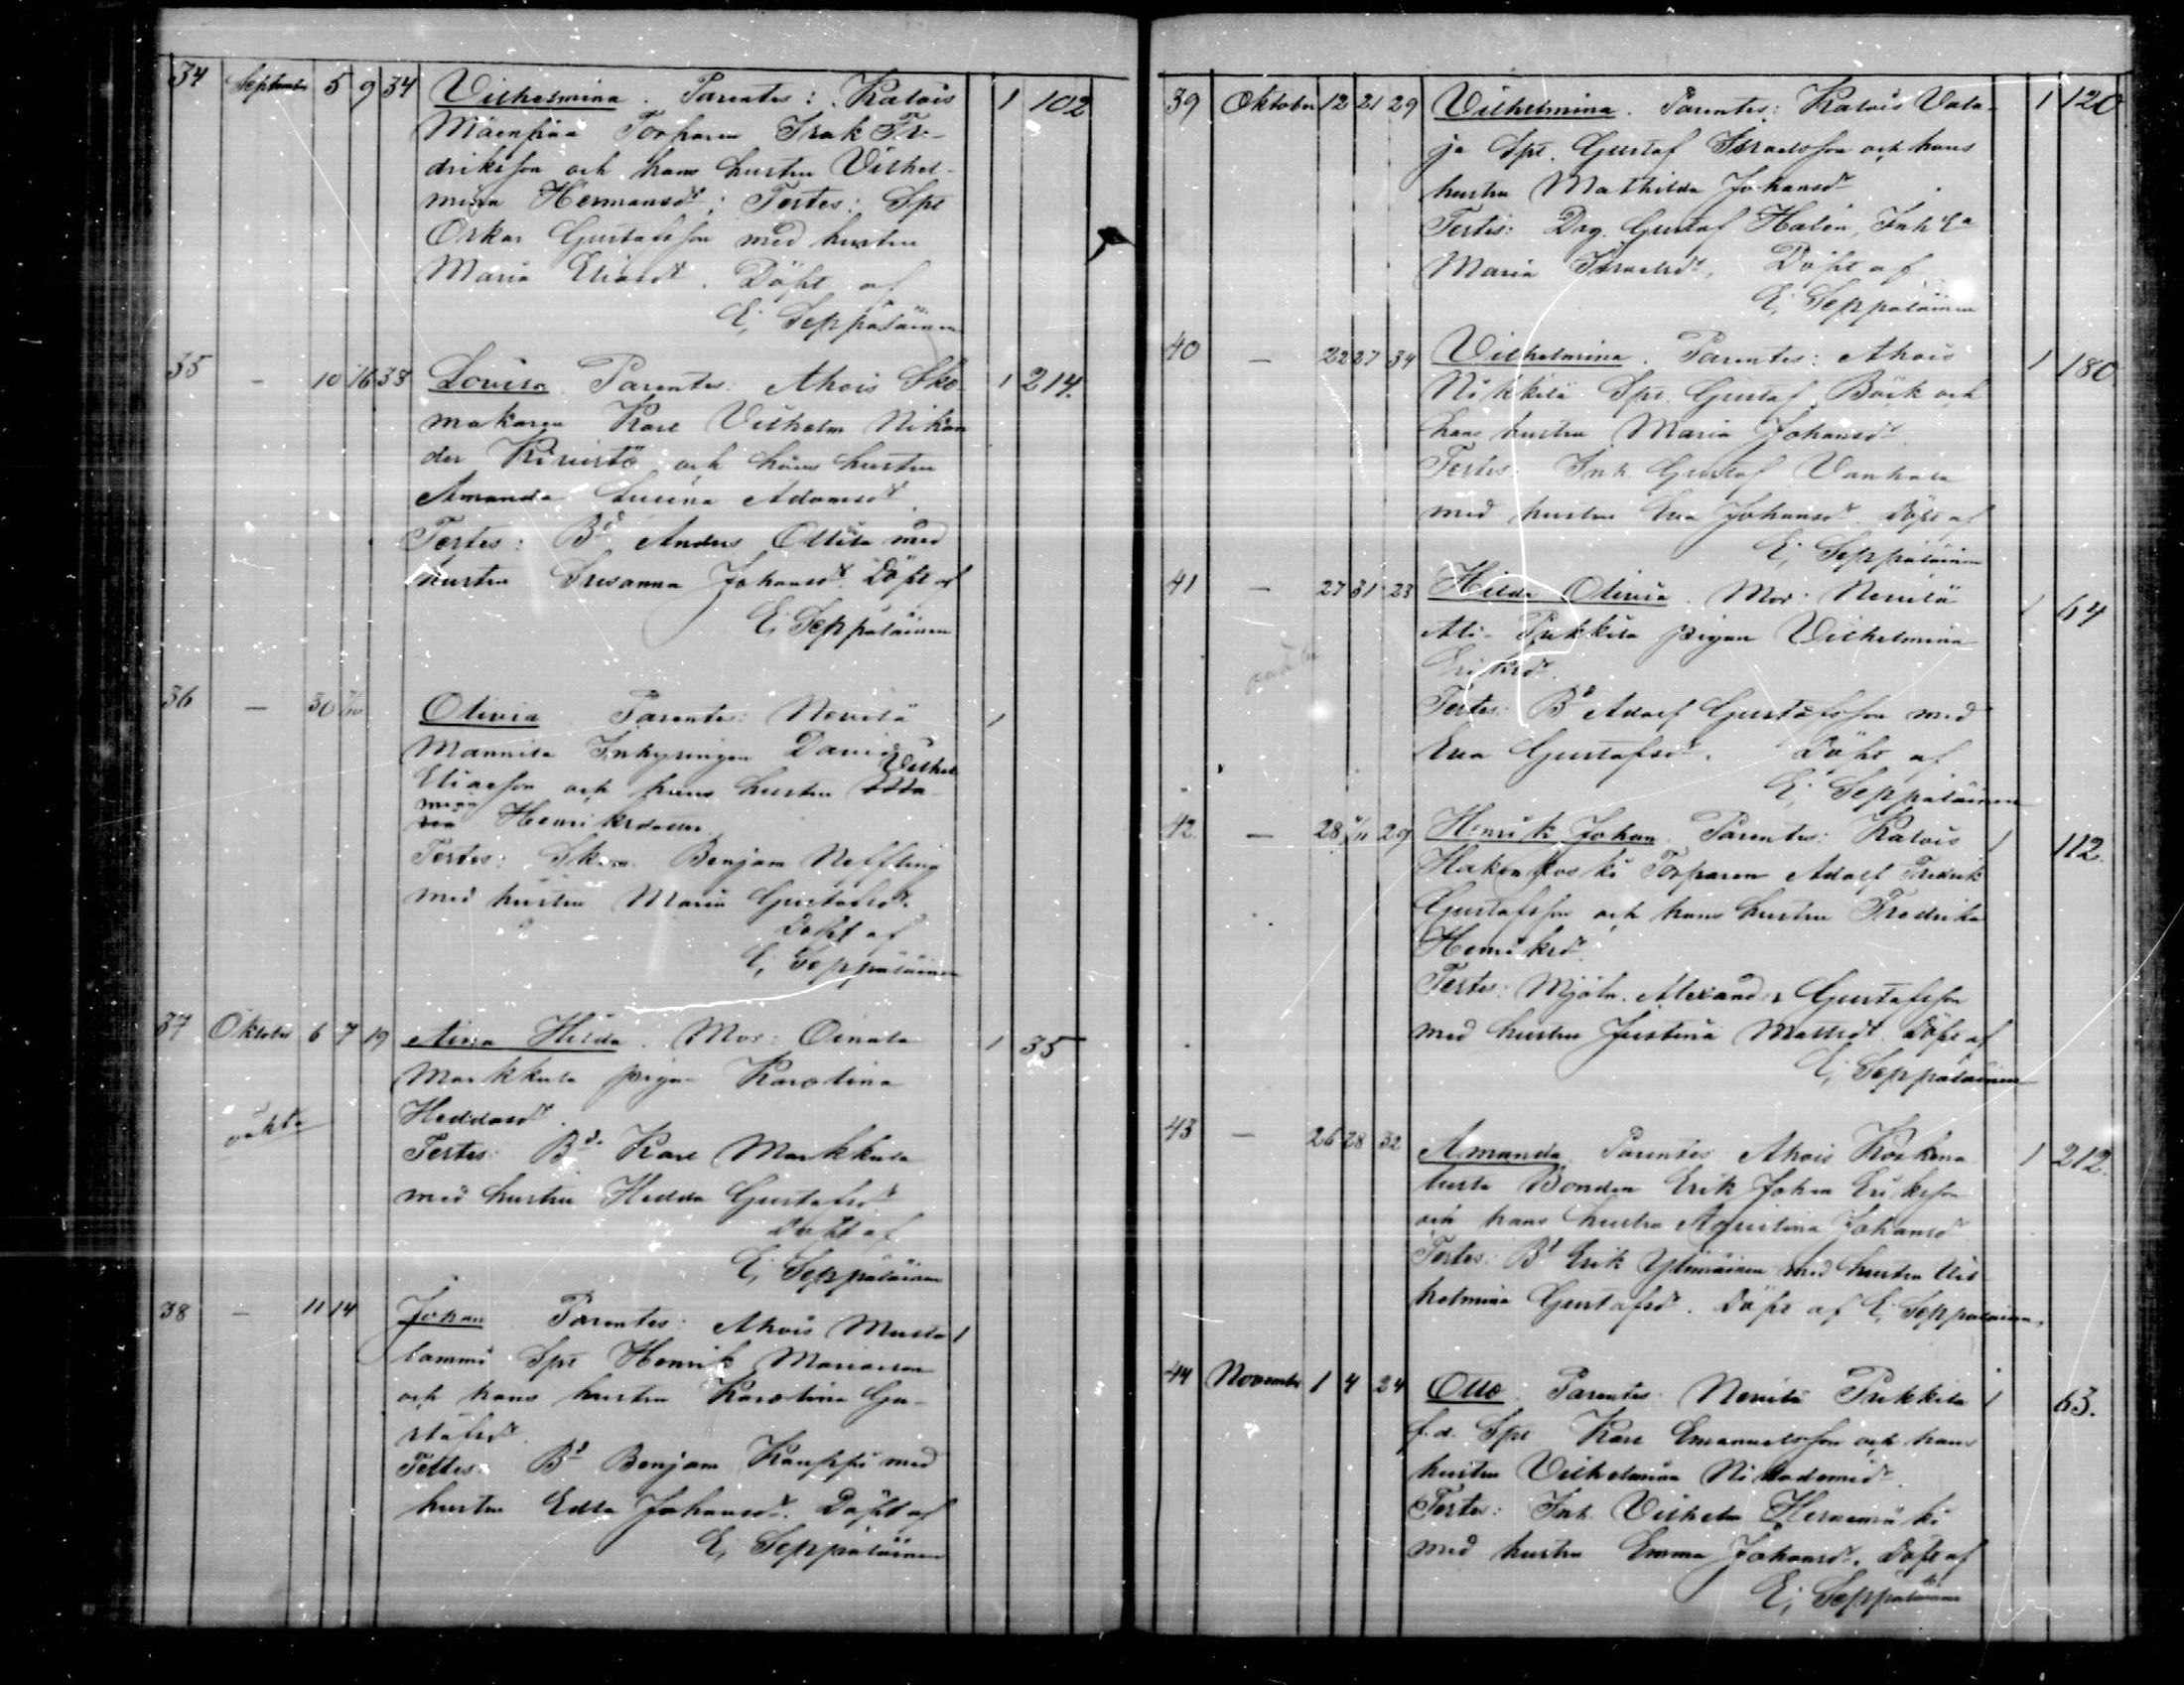 34 September 5 9 34 Vilhelmina. Parentes: Kalois 1 102
Mäenpää Torparen Isak Fre-
driksson och hans hustru Vilhel-
mina Hermansdr; Testes: Spt
Oskar Gustafsson med hustru
Maria Eliasdr. Döpt af
E. Seppäläinen
35 - 10 16 38 Lovisa. Parentes: Ahois Sko- 1 214.
makaren Karl Vilhelm Nikan
der Kivistö och hans hustru
Amanda Adamsdr.
Testes: Bd Anders Ollila med
hustru Susanna Johansdr. Döpt af
E. Seppäläinen
36 - 30 Olivia Parentes: Nevilä 1
Mannila Inhysingen David
Vilhel
Eliasson och hans hustru
mina Henriksdotter.
Testes: Benjam Neffling
med hustru Maria Gustafsdr.
Döpt af
E. Seppäläinen
37 Oktober 6 7 19 Aina Hilda. Mor: Oinala 1 35
Markkula pigan Karolina
Heddasdr.
oäkta
Testes: Bd. Karl Markkula
med hustru Hedda Gustafsdr
Döpt af
E. Seppäläinen
38 - 11 14 Johan Parentes: Ahois Musta 1
lammi Spt Henrik Mariason
och hans hustru Karolina Gu-
stafsdr.
Testes: Bd Benjam Kauppi med
hustru Edla Johansdr. Döpt af
E. Seppäläinen
39 Oktober 12 21 29 Vilhelmina. Parentes: Kalois Vata- 1 120
ja Spt. Gustaf Israelsson och hans
hustru Mathilda Johansdr
Testes: Drg. Gustaf Halén, Inh
Maria Israelsdr. Döpt af
E. Seppäläinen
40 - 22 27 34 Vilhelmina. Parentes: Ahois 1 180.
Nikkilä Spt. Gustaf Bäck och
hans hustru Maria Johansdr
Testes: Inh. Gustaf Vanhala
med hustru Eva Johansdr. Döpt af
E. Seppäläinen
41 - 27 31 23 Hilda Olivia. Mor: Nevilä 1 64
Ali-Pukkila pigan Vilhelmina
Eriksdr.
Testes: Bd Adolf Gustafsson med
Eva Gustafsdr. Döpt af
E. Seppäläinen
42. - 28 1/11 29 Henrik Johan. Parentes: Kalois 1 112.
Hakonkoski Torparen Adolf Fredrik
Gustafsson och hans hustru Fredrika
Henriksdr.
Testes: Mjöln. Alexander Gustafsson
med hustru Justina Mattsdr. Döpt af
E. Seppäläinen
43 - 26 28 32 Amanda. Parentes: Ahois Koskena 1 212.
lusta Bonden Erik Johan Eriksson
och hans hustru Agustina Johansdr
Testes: Bd Erik Ylinäinen med hustru Vil-
helmina Gustafsdr. Döpt af E. Seppäläinen.
44 November 1 4 24 Otto. Parentes: Nevilä Pukkila 1 63.
f.d. Spt Karl Emanuelsson och hans
hustru Vilhelmina Nikodemidr.
Testes: Inh. Vilhelm Hernemäki
med hustru Emma Johansdr. Döpt af
E. Seppäläinen